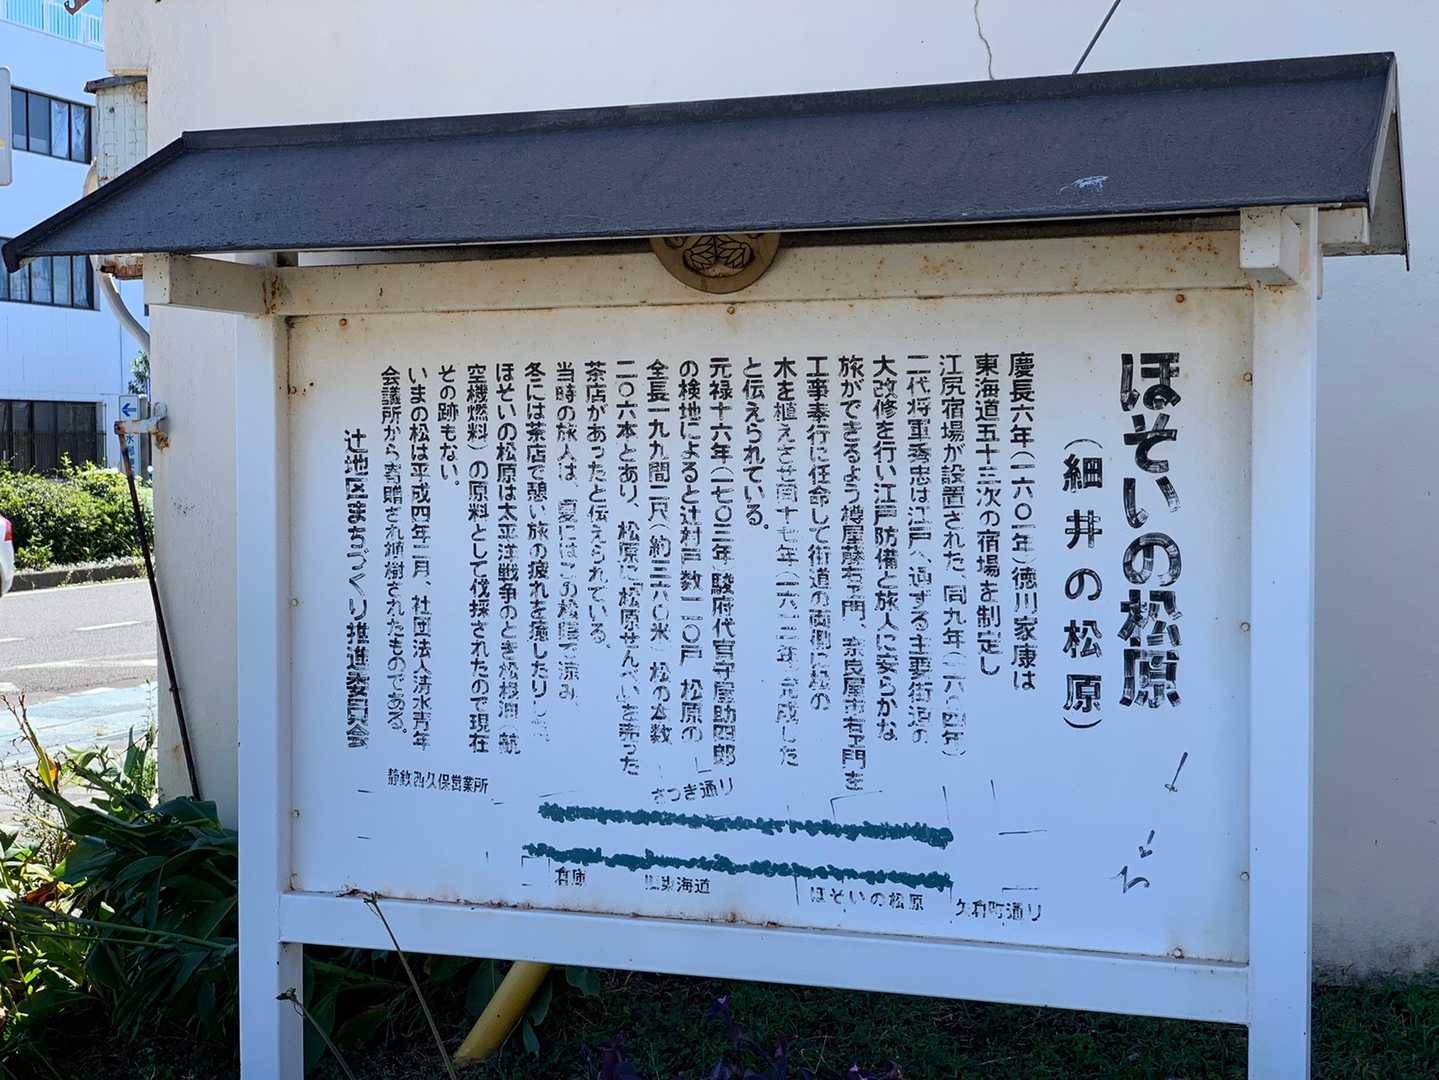 ほそいの松原
（細井の松原）
慶長六年（一六〇一年）徳川家康は
東海道五十三次の宿場を制定し
江尻宿場が設置された、同九年（一六〇四年）
二代将軍秀忠は江戸へ通ずる主要街道の
大改修を行い江戸防備と旅人に安らかな
旅ができるよう樽屋藤右ヱ門、奈良屋市右ヱ門を
工事奉行に任命して街道の両側に松の
木を植えさせ同十七年（一六一二年）完成した
と伝えられている。
元禄十六年（一七〇三年）駿府代官守屋助四郎
の検地によると辻村戸数一一〇戸 松原の
全長一九九間二尺（約三六〇米）松の本数
二〇六本とあり、松原に「松原せんべい」を売った
茶店があったと伝えられている。
当時の旅人は、夏にはこの松陰で涼み、
冬には茶店で憩い旅の疲れを癒したりし
ほそいの松原は太平洋戦争のとき松根油（航
空機燃料）の原料として伐採されたので現在
その跡もない。
いまの松は平成四年二月、社団法人清水青年
会議所から寄贈され植樹されたものである。
辻地区まちづくり推進委員会
静鉄西久保営業所
さつき通り
倉庫
旧東海道
ほそいの松原
矢倉町通り